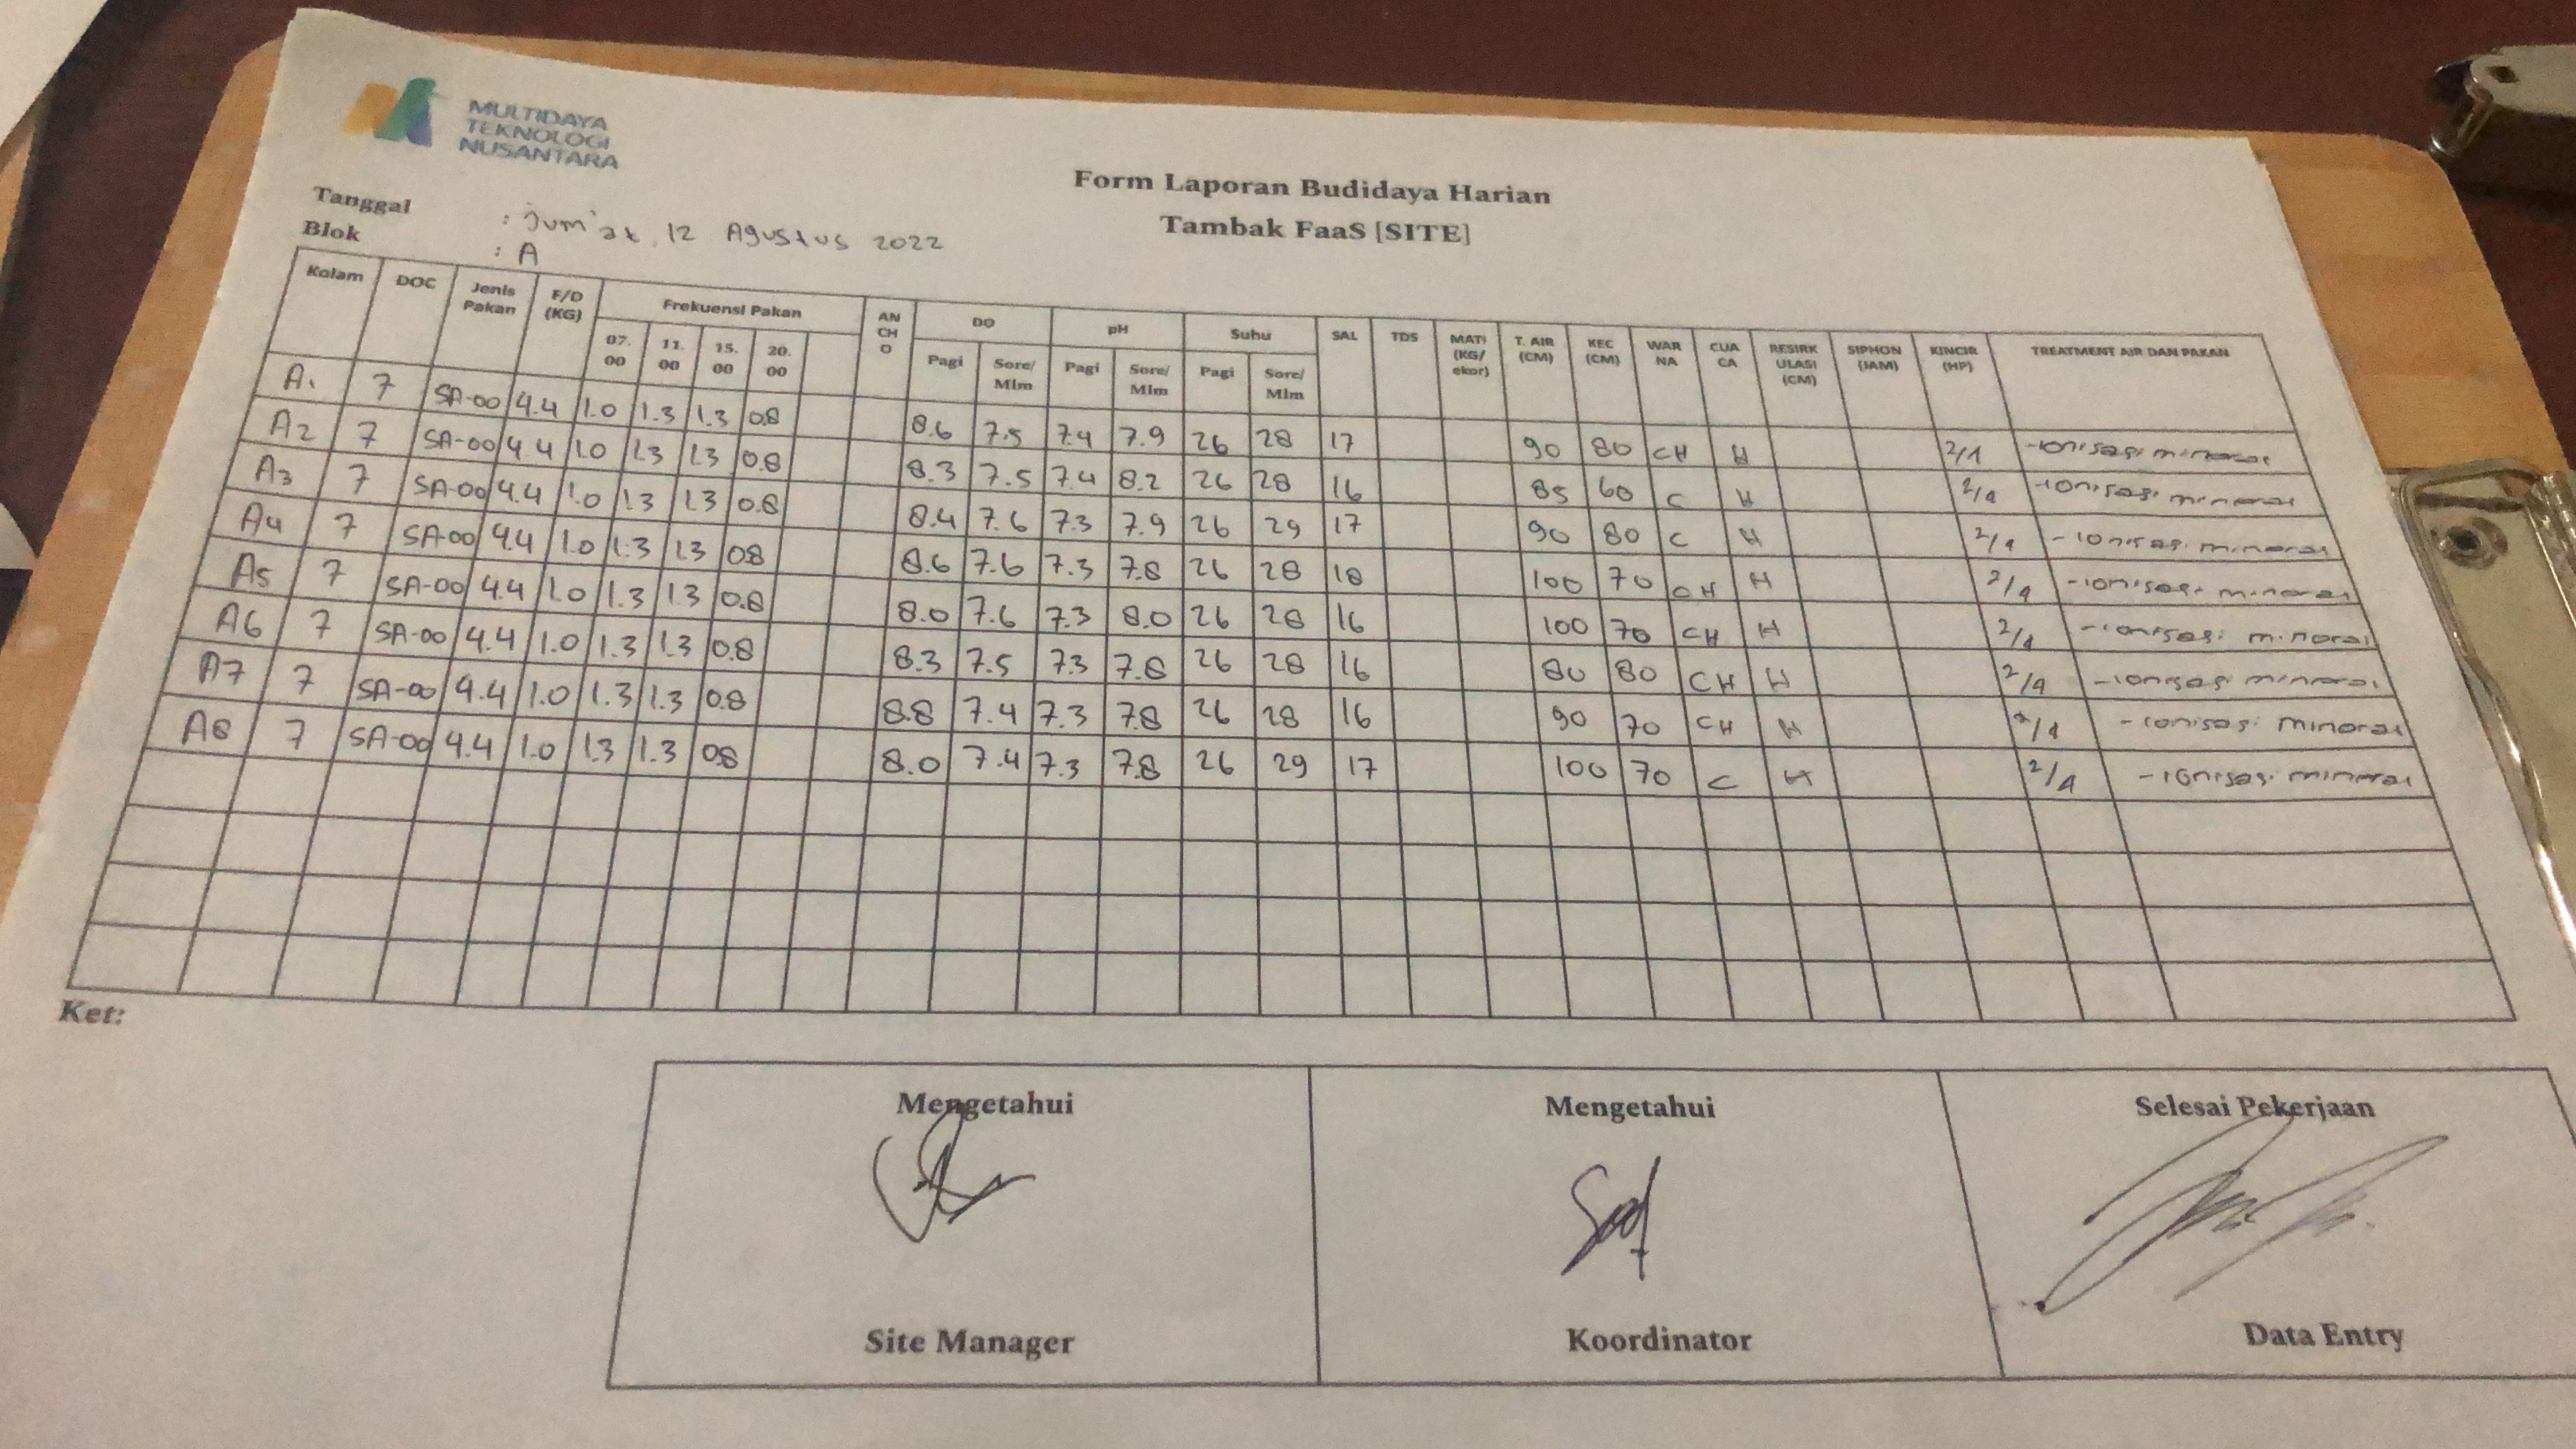 MULTIDAYA
TEKNOLOGI
NUSANTARA
Form Laporan Budidaya Harian
Tambak FaaS [SITE]
Tanggal : Jum'at, 12 Agustus 2022
Blok : A
Kolam DOC Jenis Pakan F/D (KG) Frekuensi Pakan AN CH O DO pH Suhu SAL TDS MATI (KG/ ekor) T. AIR (CM) KEC (CM) WAR NA CUA CA RESIRK ULASI (CM) SIPHON (JAM) KINCIR (HP) TREATMENT AIR DAN PAKAN
07. 00 11. 00 15. 00 20. 00 Pagi Sore/ Mlm Pagi Sore/ Mlm Pagi Sore/ Mlm
A1 7 SA-00 4.4 1.0 1.3 1.3 0.8 8.6 7.5 7.4 7.9 26 28 17 90 80 CH H 2/1 -ionisasi mineral
A2 7 SA-00 4.4 1.0 1.3 1.3 0.8 8.3 7.5 7.4 8.2 26 28 16 85 60 C H 2/1 -ionisasi mineral
A3 7 SA-00 4.4 1.0 1.3 1.3 0.8 8.4 7.6 7.3 7.9 26 29 17 90 80 C H 2/1 -ionisasi mineral
A4 7 SA-00 4.4 1.0 1.3 1.3 0.8 8.6 7.6 7.3 7.8 26 28 18 100 70 CH H 2/1 -ionisasi mineral
A5 7 SA-00 4.4 1.0 1.3 1.3 0.8 8.0 7.6 7.3 8.0 26 28 16 100 70 CH H 2/1 -ionisasi mineral
A6 7 SA-00 4.4 1.0 1.3 1.3 0.8 8.3 7.5 7.3 7.8 26 28 16 80 80 CH H 2/1 -ionisasi mineral
A7 7 SA-00 4.4 1.0 1.3 1.3 0.8 8.8 7.4 7.3 7.8 26 28 16 90 70 CH H 2/1 -ionisasi mineral
A8 7 SA-00 4.4 1.0 1.3 1.3 0.8 8.0 7.4 7.3 7.8 26 29 17 100 70 C H 2/1 -ionisasi mineral
Ket:
Mengetahui Mengetahui Selesai Pekerjaan
Site Manager Koordinator Data Entry